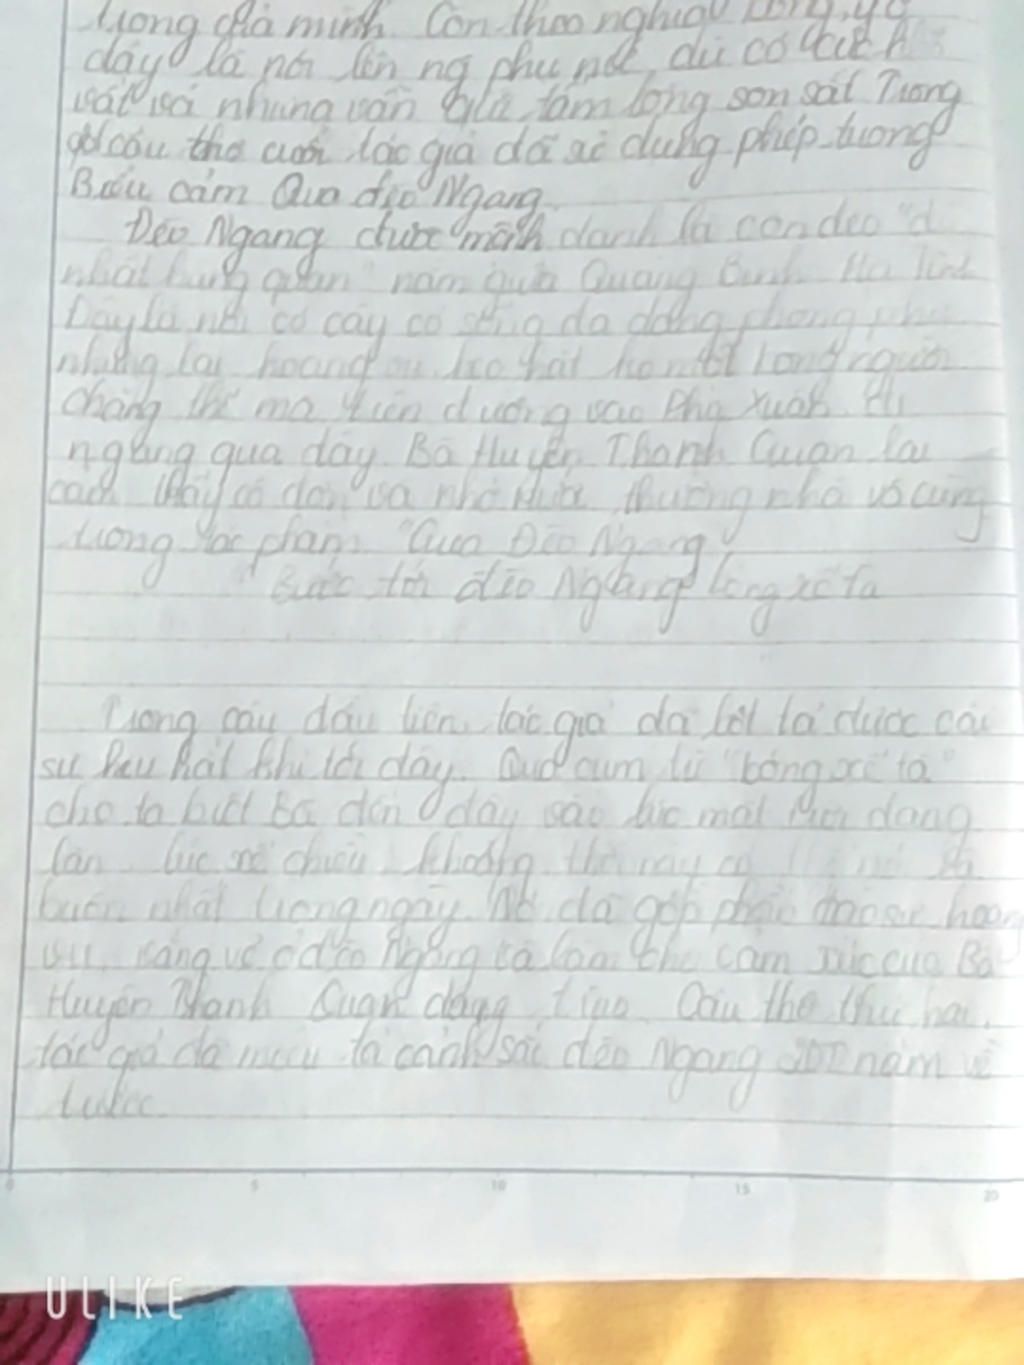 trong của mình. Còn theo nghĩa
đây là nói lên ng phụ nữ, dù có cực
vất vả nhưng vẫn giữ tấm lòng son sắt Trong
câu thơ cuối tác giả đã sử dụng phép tương
Biểu cảm Qua đèo Ngang.
Đèo Ngang được mệnh danh là con đèo "đ
nhất hùng quan" nằm giữa Quảng Bình Hà Tĩnh
Đây là nơi có cây cỏ sống đa dạng phong phú
nhưng lại hoang vu heo hút không người
chẳng thế mà trên đường vào Phú Xuân đi
ngang qua đây Bà Huyện Thanh Quan lại
cảm thấy cô đơn và nhớ nước thương nhà vô cùng
trong tác phẩm "Qua Đèo Ngang"
"Bước tới đèo Ngang bóng xế tà
Trong câu đầu tiên, tác giả đã bột tả được cái
sự heo hút khi tới đây. Qua cụm từ "bóng xế tà"
cho ta biết Bà đến đây vào lúc mặt trời đang
lặn lúc xế chiều khoảng thời này
buồn nhất trong ngày. Nó đã góp phần tạo sự hoang
vu, vắng vẻ ở đèo Ngang và làm cho cảm xúc của Bà
Huyện Thanh Quan dâng trào. Câu thơ thứ hai,
tác giả đã miêu tả cảnh sắc đèo Ngang 200 năm về
trước.
0 5 10 15 20
ULIKE